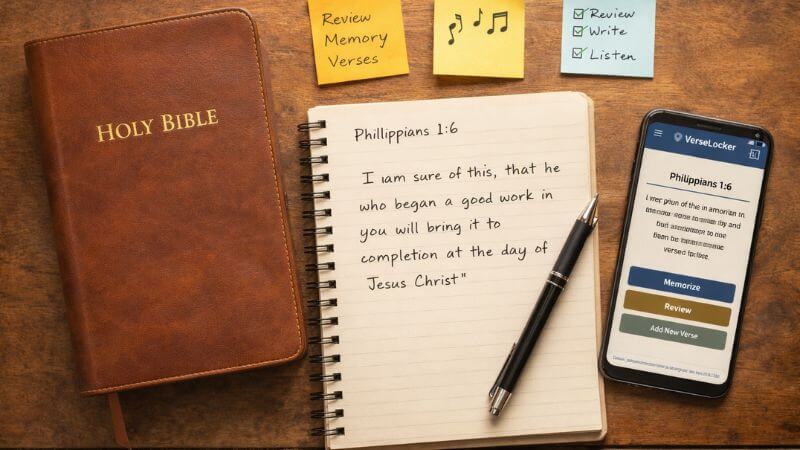 HOLY BIBLE
Review
Memory
Verses
Review
Write
Listen
Phillippians 1:6
I am sure of this, that he
who began a good work in
you will bring it to
completion at the day of
Jesus Christ"
VerseLocker
Philippians 1:6
Memorize
Review
Add New Verse